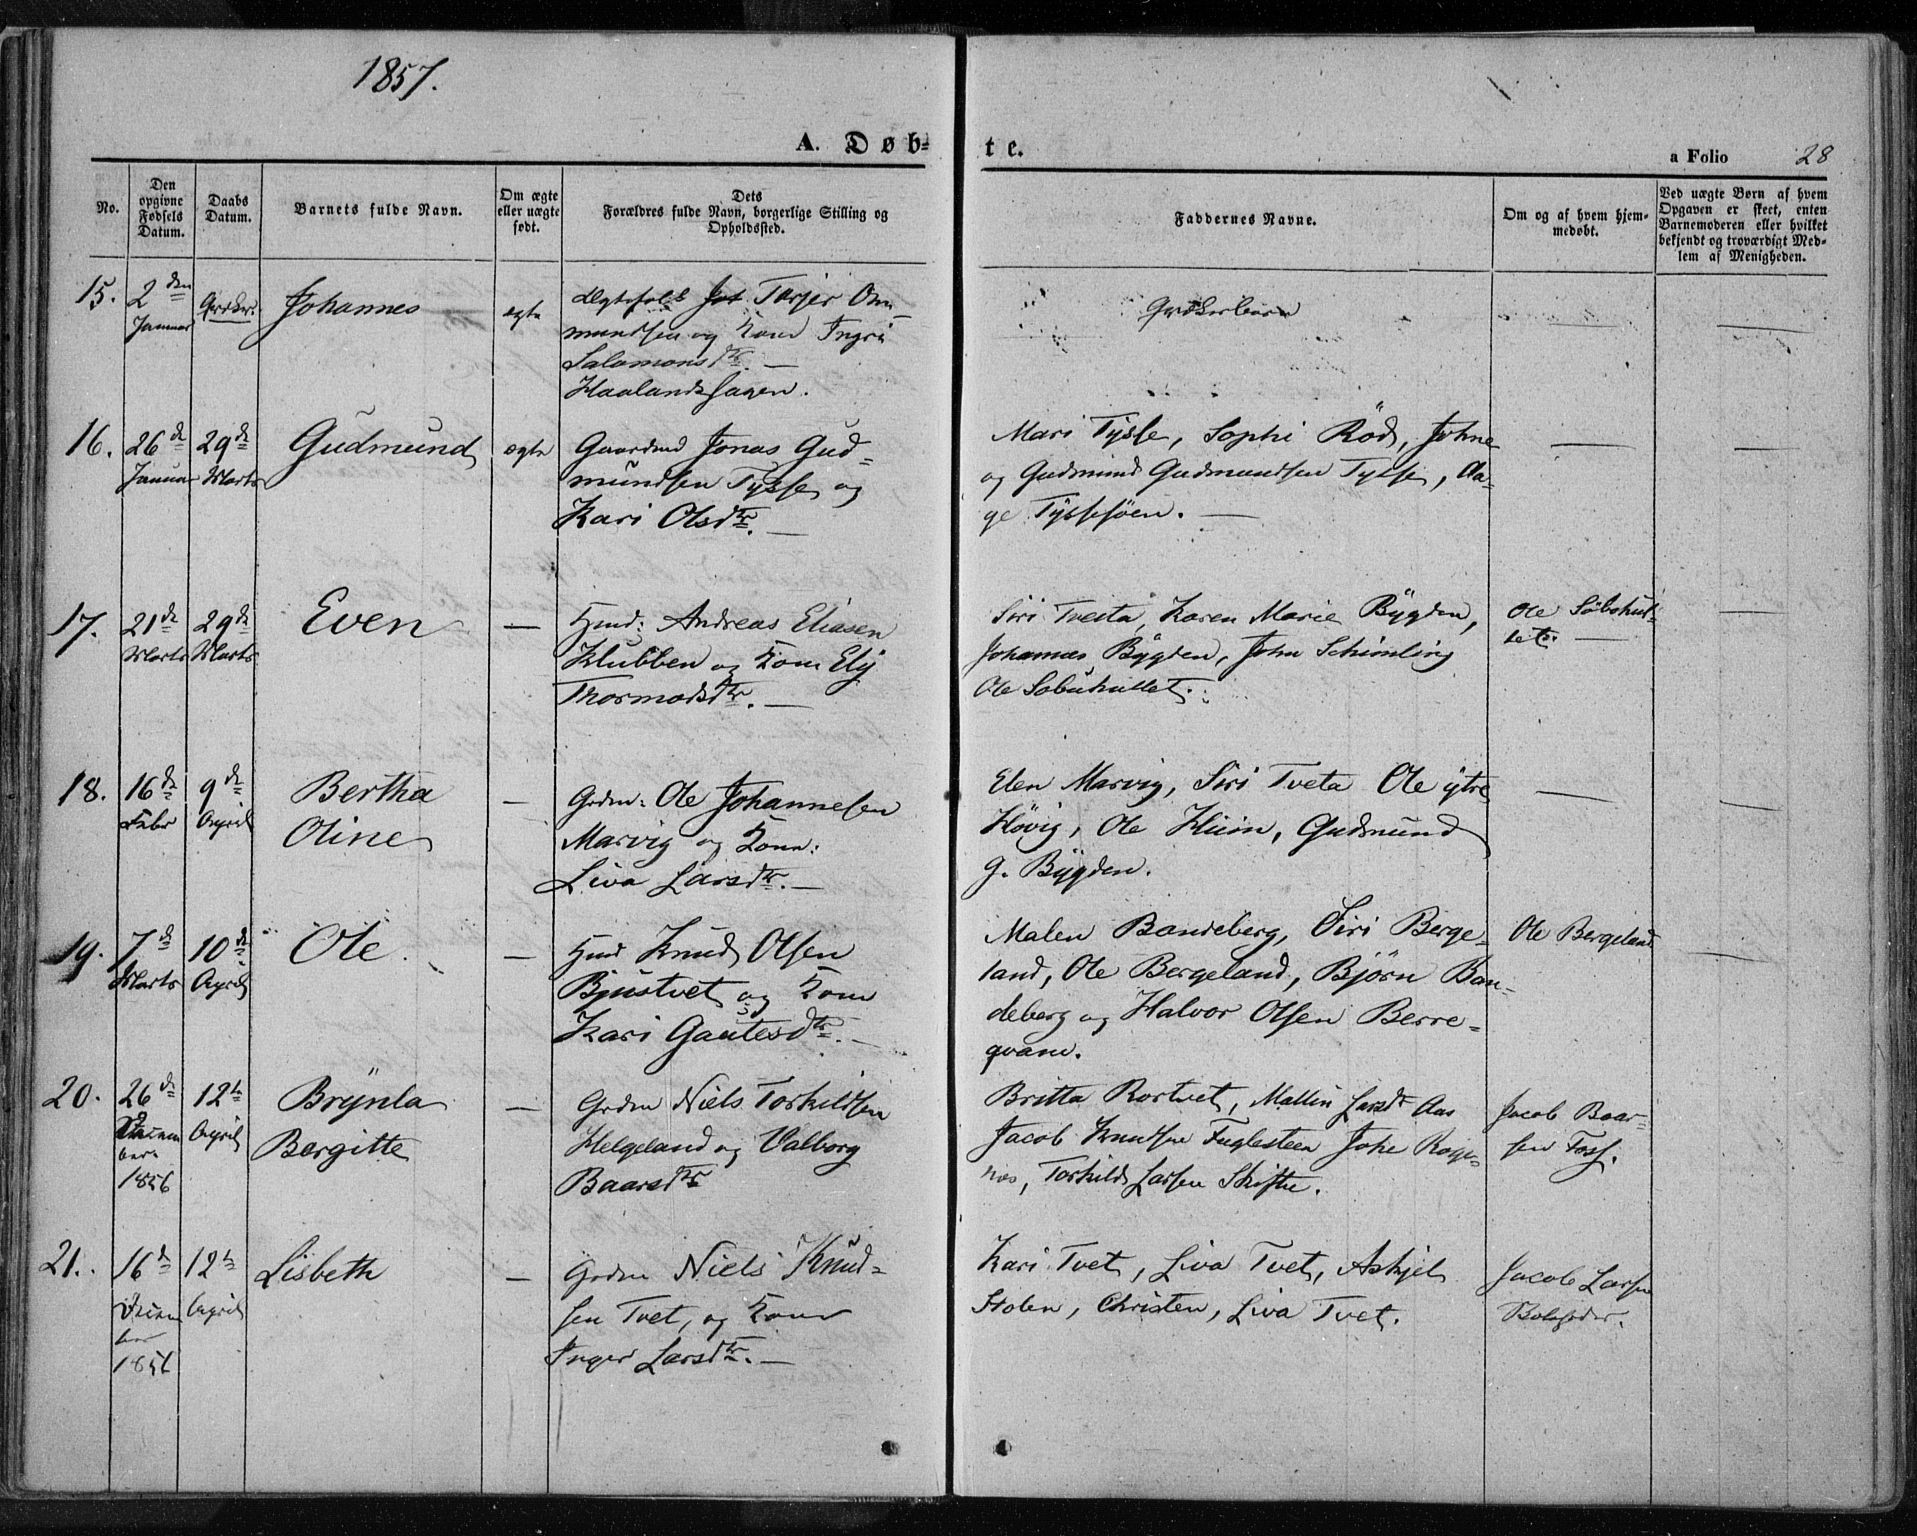 1857.
A. Døb-
te.
a Folio 28
No.
Den
opgivne
Fødsels
Datum.
Daabs
Datum.
Barnets fulde Navn.
Om ægte
eller uægte
født.
Dets
Forældres fulde Navn, borgerlige Stilling og
Opholdssted.
Faddernes Navne.
Om og af hvem hjem-
medøbt.
Ved uægte Børn af hvem
Opgaven er skeet, enten
Barnemoderen eller hvilket
bekjendt og troværdigt Med-
lem af Menigheden.
15.
2 den
Januar
Johannes
ægte
Ægtefolk Tarjer Om-
mundsen og Kone Ingri
Salomonsdtr. —
Haaland
16.
26 d
Januar
29 d
Marts
Gudmund
ægte
Gaardmd Jonas Gud-
mundsen Tysse og
Kari Olsdtr. —
Mari Tysse, Sophi Röd, Johne
og Gudmund Gudmundsen Tysse, Aa-
ge Tyssesöen. —
—
—
17.
21 d
Marts
29 d
Marts
Even
—
Hmd: Andreas Eliasen
Klubben og Kone Elj
Thormodsdtr. —
Siri Tveita, Karen Marie Bÿgden,
Johannes Bÿgden, John Schimling
Ole
Ole
—
18.
16 d
Febr
9 d
April
Bertha
Oline
—
Grdm: Ole Johannesen
Marvig og Kone:
Liva Larsdtr. —
Elen Marvig, Siri Tveta Ole ytre
Høvig, Ole Hiim, Gudmund
G. Bÿgden.
—
—
19.
7 d
Marts
10 d
April
Ole
—
Hmd Knud Olsen
Bjustvet og Kone
Kari Gautesdtr. —
Malen Bandeberg, Siri Berge-
land, Ole Bergeland, Bjørn Ban-
deberg og Halvor Olsen Berre-
qvam.
Ole Bergeland
—
20.
26 d
Decem
ber
1856
12te
April
Brÿnla
Bergitte
—
Grdm Niels Torkildsen
Helgeland og Valborg
Baarsdtr
Britta Rortvet, Mallin Larsdtr Aas
Jacob Knudsen Fuglesteen Johe Roge-
nes, Torkild Larsen Skiftu.
Jacob Baar-
sen Foss.
21.
16 d
Decem
ber
1856
12te
April
Lisbeth
—
Grdm Niels Knud-
sen Tvet, og Kone
Inger Larsdtr. —
Kari Tvet, Liva Tvet, Askjel
Stolen, Christen, Liva Tvet.
Jacob Larsen